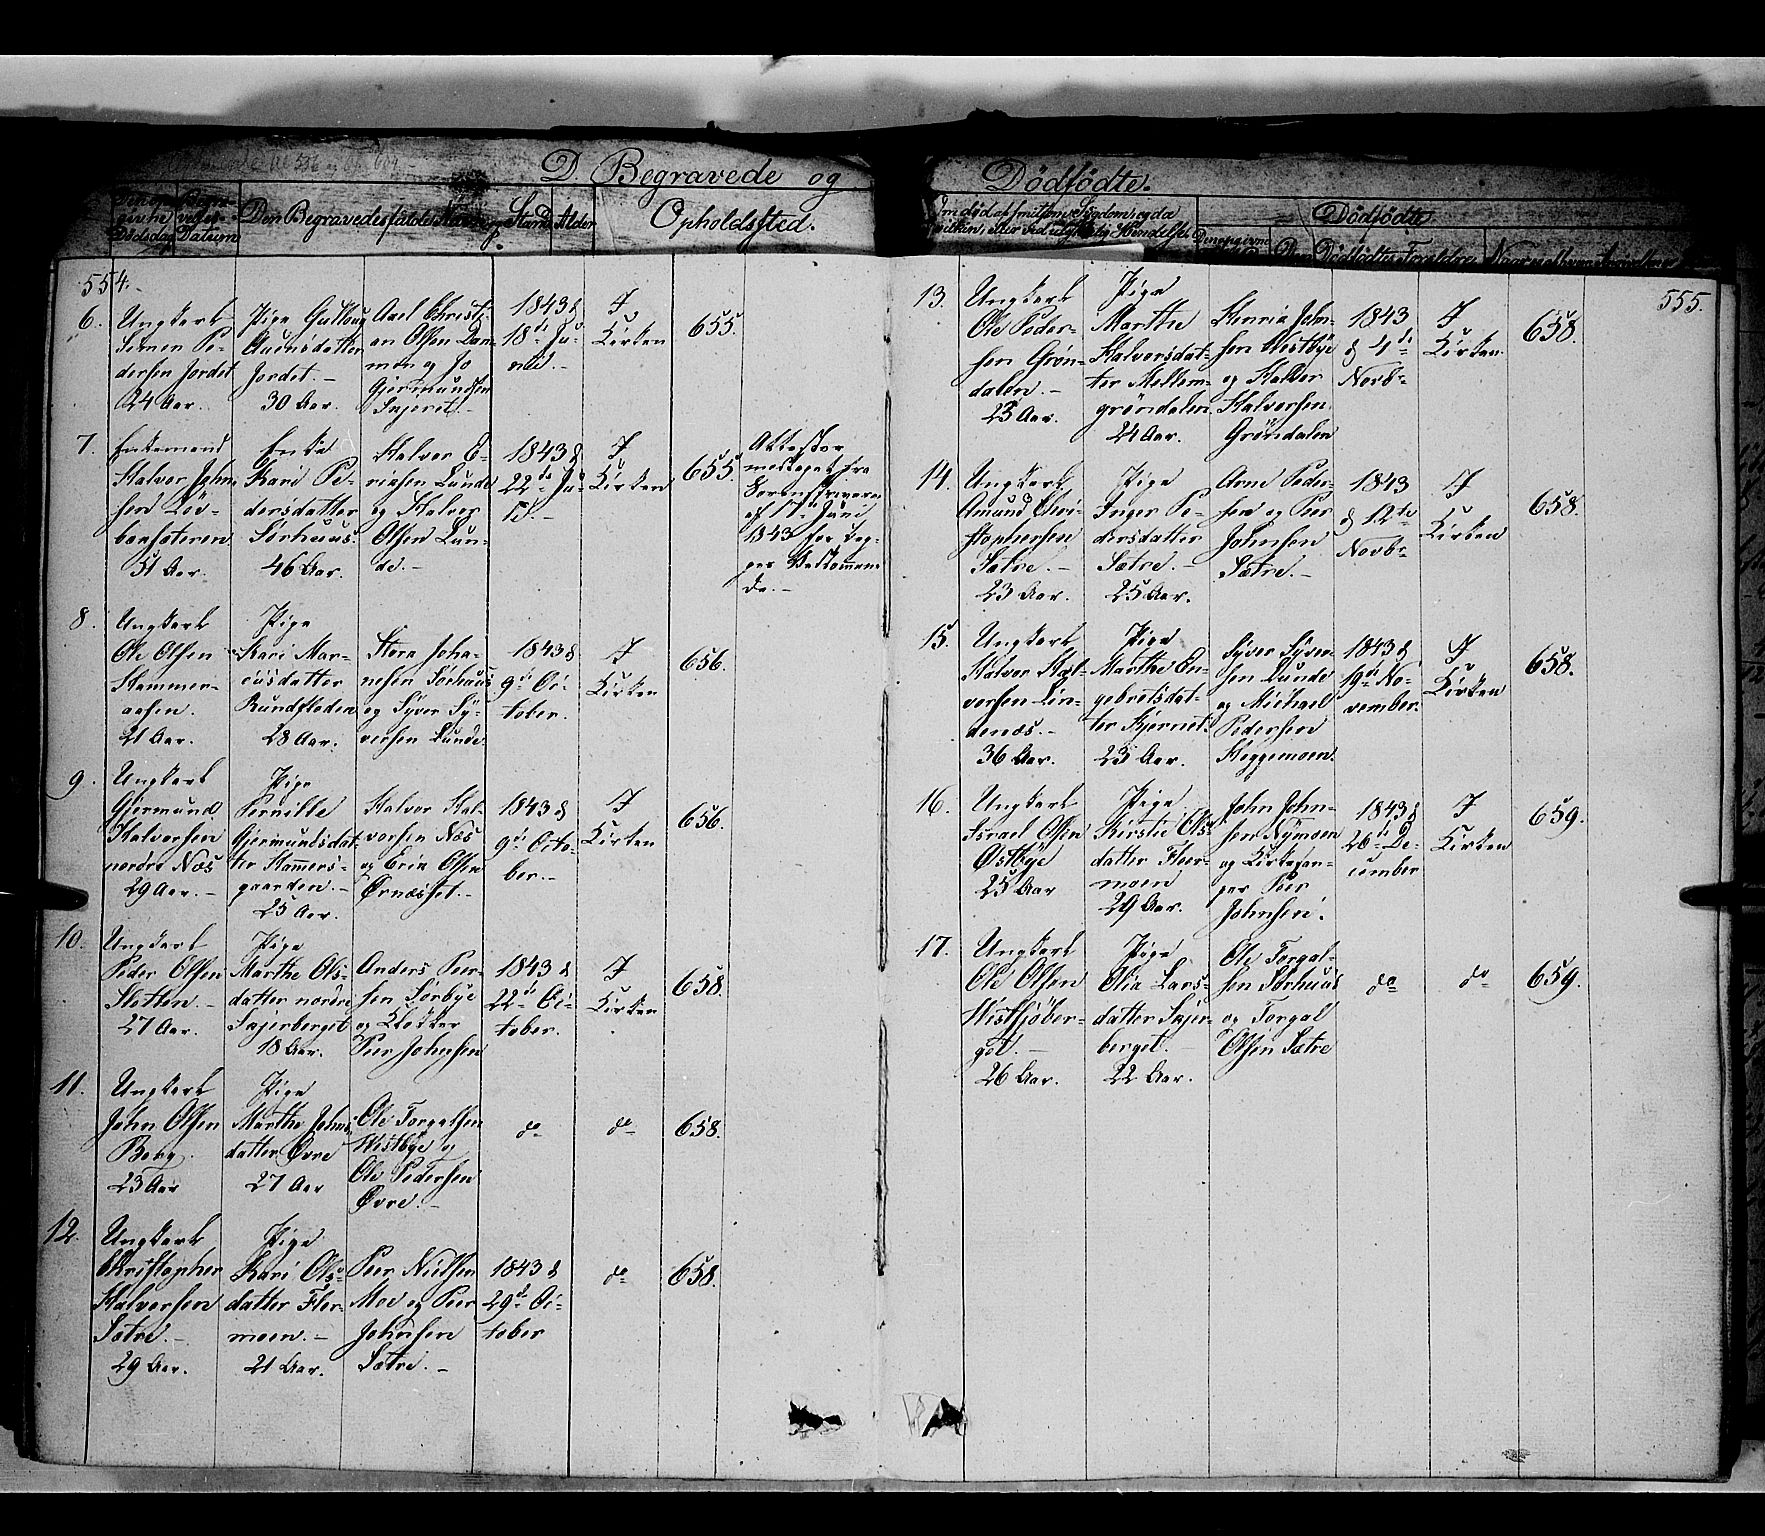 D. Begravede og Dödfödte.
Den Begravedes fulde Navn
Stand
Alder
Opholdssted.
Dödfödte
554.
6.
Ungkarl
Simen Pe-
dersen Jordet
24 Aar.
Pige Gulloug
Auensdatter
Jordet.-
30 Aar.
Axel Christi-
an Olsen Dam-
men og Jo
Gjermundsen
1843 d
18de Ju-
nii.-
I
Kirken
655.
7.
Enkemand
Halvor John-
sen Löv-
51 Aar.
Enke
Kari Pe-
dersdatter
Sörhuus.
46 Aar.
Halvor E-
riksen Lunde
og Halvor
Olsen Lun-
de.-
1843 d
22de Ju-
I
Kirken
655.
Attester
modtaget fra
Sorenskriveren
af 17de Juni
1843 for beg-
ge Vedkommen
de.-
8.
Ungkarl
Ole Olsen
Hammer-
aasen.
21 Aar.
Pige
Kari Mar-
cusdatter
Rundfloden
28 Aar.
Steen Joha-
nesen Sörhuus
og Syver Sy-
versen Lunde.
1843 d
9de Oc-
tober.
I
Kirken
656.
9.
Ungkarl
Gjermund
Halvorsen
nordre Næs
29 Aar.-
Pige
Pernille
Gjermundsdat-
ter Hammers-
gaarden.-
25 Aar.
Halvor Hal-
vorsen Næs
og Erik Olsen
Ørnæsset.-
1843 d
9de Octo-
ber.-
I
Kirken
656.
10.
Ungkarl
Peder Olsen
Slotten.-
27 Aar.
Pige
Marthe Ols-
datter nordre
Snjerberget
18 Aar.
Anders Peer-
sen Sörbye
og Klokker
Peer Johnsen
1843 d
22de Oc-
tober.
I
Kirken
658.
11.
Ungkarl
John Olsen
Berg.
23 Aar
Pige
Marthe Johns-
datter Øvre
27 Aar
Ole Torgalsen
Westbye og
Ole Pedersen
Øvre.-
do
do
658.
12.
Ungkarl
Christopher
Halvorsen
Sætre.-
29 Aar.
Pige
Kari Ols-
datter Fler-
moen.-
21 Aar.
Peer Nielsen
Moe og Peer
Johnsen
Sætre.-
1843 d
29de Oc-
tober
do
658.
555.
13.
Ungkarl
Ole Peder-
sen Grön-
dalen.-
23 Aar.
Pige
Marthe
Halvorsdat-
ter Mellem-
gröndalen
24 Aar.
Henrik John-
sen Westbye
og Halvor
Halvorsen
Gröndalen
1843
d 4de
Novbr
I
Kirken
658.
14.
Ungkarl
Amund Chri-
stophersen
Sætre.-
23 Aar.
Pige
Inger Pe-
dersdatter
Sætre.-
25 Aar.
Arne Peder-
sen og Peer
Johnsen
Sætre.-
1843
d 12te
Novbr
I
Kirken
658.
15.
Ungkarl
Halvor Hal-
vorsen Lin-
denæs.-
36 Aar.
Pige
Marthe En-
gebretsdat-
ter Kjernet.
23 Aar.
Syver Syver-
sen Lunde
og Michael
Pedersen
Heggemoen.
1843 d
19de No-
vember.
I
Kirken
658.
16.
Ungkarl
Israel Olsen
Østbye
25 Aar
Pige
Kirstie Ols-
datter Fler-
moen
29 Aar.
John John-
sen Nymoen
og Kirkesan-
ger Peer
Johnsen.
1843 d
26de De-
cember
I
Kirken
659.
17.
Ungkarl
Ole Olsen
Westsjöber-
get.-
26 Aar.
Pige
Olia Lars-
datter Snjer-
berget.-
22 Aar.
Ole Torgal-
sen Sörhuus
og Torgal
Olsen Sætre
do
do
659.